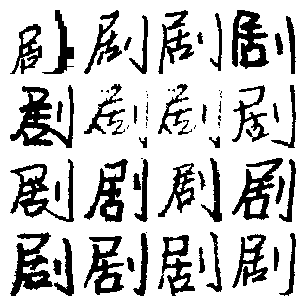 剧剧剧剧
剧剧剧剧
剧剧剧剧
剧剧剧剧